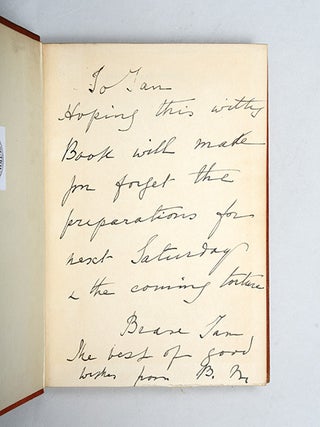 To Ian
Hoping this witty
Book will made
you forget the
preparations for
next Saturday
& the coming torture
Brave Ian
The best of good
wishes from B. M.